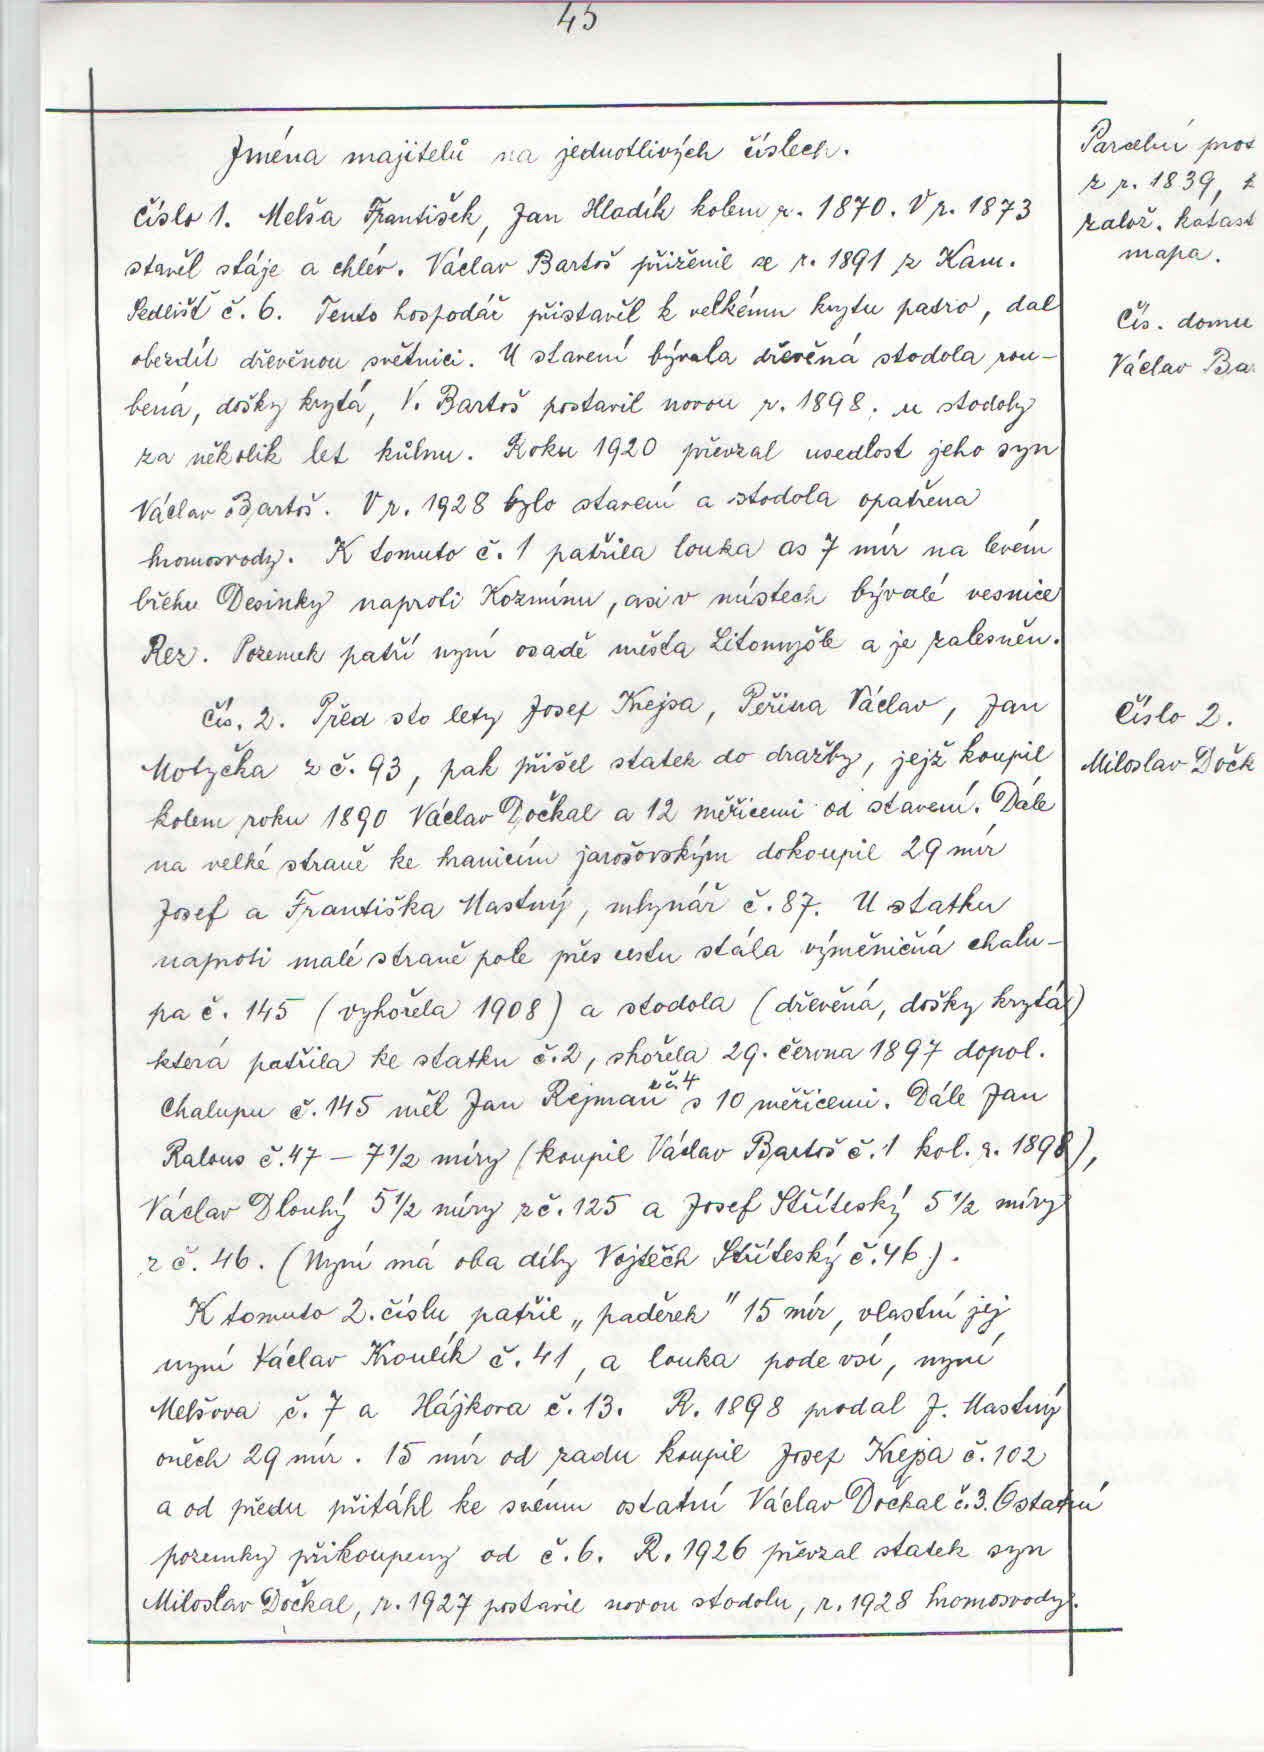 45
Jména majitelů na jednotlivých číslech.
Číslo 1. Melša František, Jan Hladík kolem r. 1870. V r. 1873
stavěl stáje a chlév. Václav Bartoš přiženil se r. 1891 z Kam.
Sedlišť č. 6. Tento hospodář přistavěl k velkému krytu patro, dal
obezdít dřevěnou světnici. U stavení bývala dřevěná stodola rou-
bená, došky krytá, V. Bartoš postavil novou r. 1898. u stodoly
za několik let kůlnu. Roku 1920 převzal usedlost jeho syn
Václav Bartoš. V r. 1928 bylo stavení a stodola opatřena
hromosvody. K tomuto č. 1 patřila louka as 7 mír na levém
břehu Desinky naproti Kozmínu, asi v místech bývalé vesnice
Rez. Pozemek patří nyní osadě města Litomyšle a je zalesněn.
Čís. 2. Před sto lety Josef Kejsa, Peřina Václav, Jan
Motyčka z č. 93, pak přišel statek do dražby, jejž koupil
kolem roku 1890 Václav Dočkal a 12 měřicemi od stavení. Dále
na velké straně ke hranicím jarošovským dokoupil 29 mír
Josef a Františka Mastný, mlynář č. 87. U statku
naproti malé straně pole přes cestu stála výměničná chalu-
pa č. 145 (vyhořela 1908) a stodola (dřevěná, došky krytá)
která patřila ke statku č. 2, shořela 29. června 1897 dopol.
Chalupu č. 145 měl Jan Rejman z č. 4 s 10 měřicemi. Dále Jan
Ralous č. 47 – 7 1/2 míry (koupil Václav Bartoš č. 1 kol. r. 1898),
Václav Dlouhý 5 1/2 míry z č. 125 a Josef Stříteský 5 1/2 míry
z č. 46. (Nyní má oba díly Vojtěch Stříteský č. 46.).
K tomuto 2. číslu patřil „paděrek" 15 mír, vlastní jej
nyní Václav Kroulík č. 41, a louka pode vsí, nyní
Melšova č. 7 a Hájkova č. 13. R. 1898 prodal J. Mastný
oněch 29 mír. 15 mír od zadu koupil Josef Kejsa č. 102
a od předu přitáhl ke svému ostatní Václav Dočkal č. 3. Ostatní
pozemky přikoupeny od č. 6. R. 1926 převzal statek syn
Miloslav Dočkal, r. 1927 postavil novou stodolu, r. 1928 hromosvody.
Parcelní prot
z r. 1839,
založ. katast
mapa.
Čís. domu
Václav Ba
Číslo 2.
Miloslav Dočk